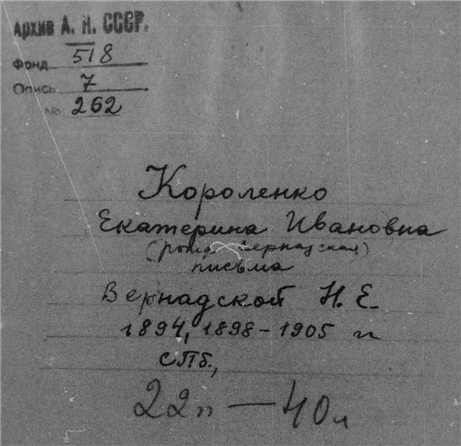 Архив А. Н. СССР.
Фонд 518
Опись 7
№ 262
Короленко
Екатерина Ивановна
письма
Вернадской Н. Е.
1894, 1898-1905 гг
СПб.,
22п — 40л